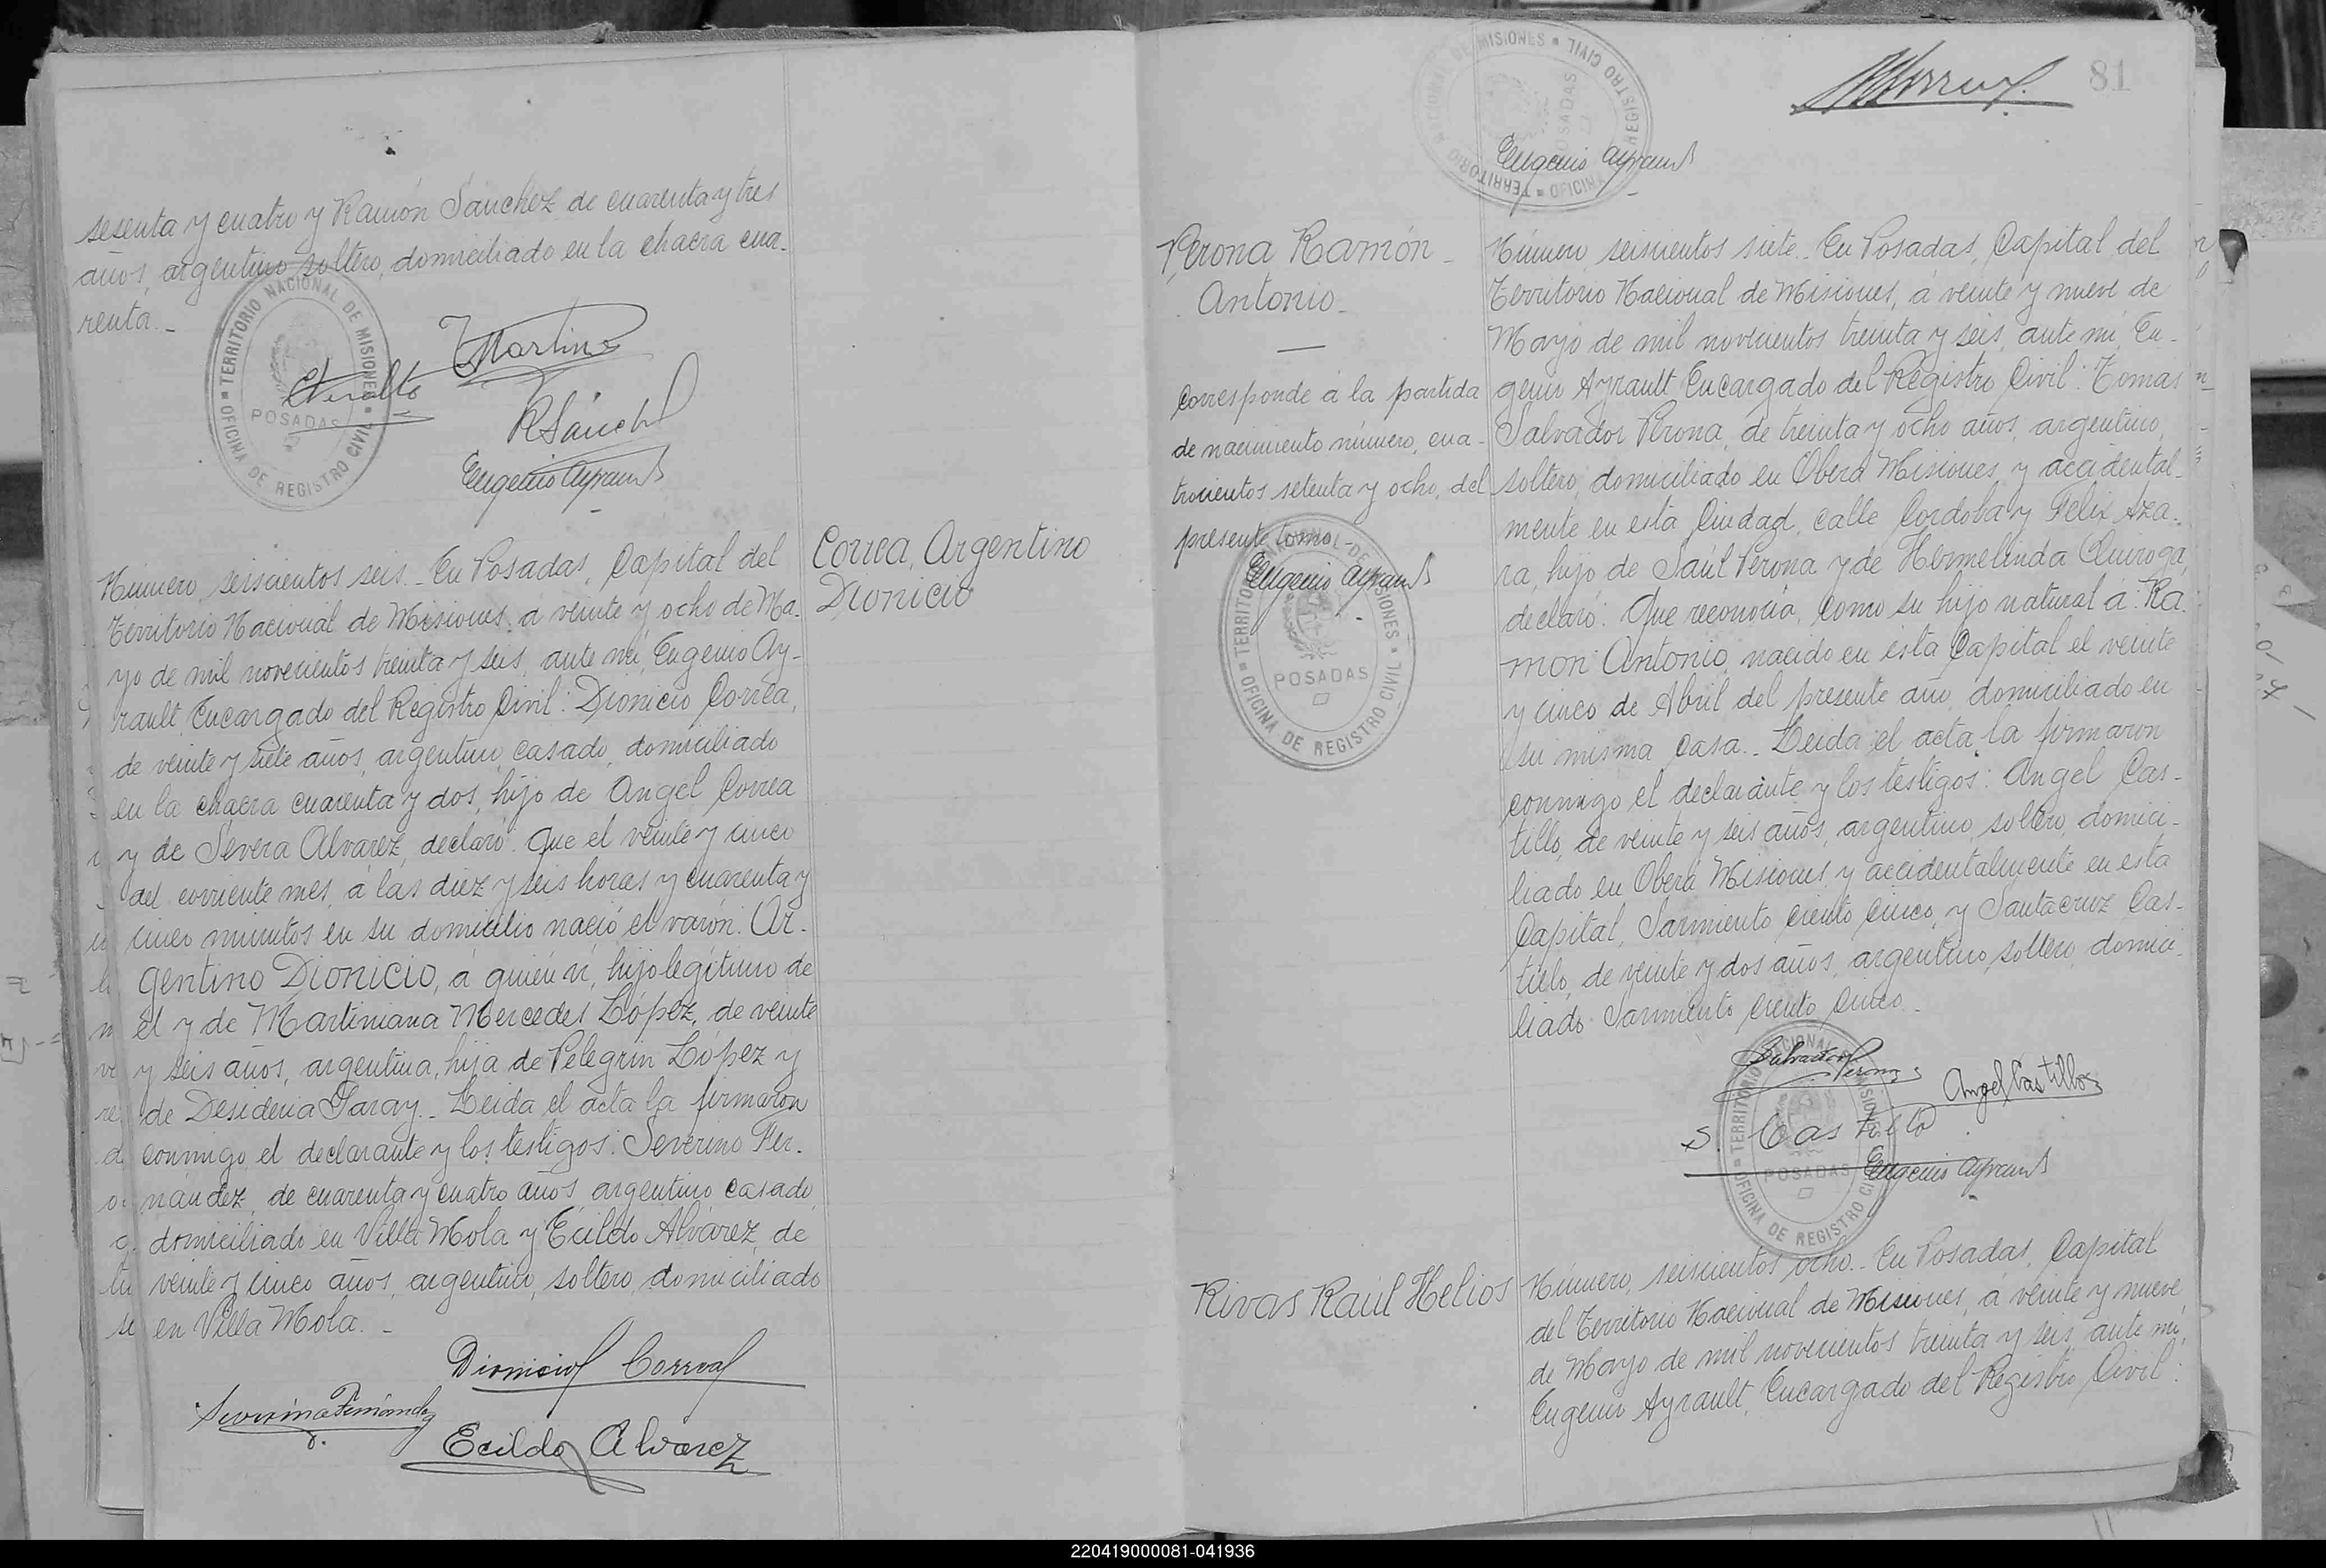 sesenta y cuatro y Ramón Sánchez de cuarenta y tres
años, argentino soltero, domiciliado en la chacra cua-
renta.-
TERRITORIO NACIONAL DE MISIONES
OFICINA DE REGISTRO CIVIL
POSADAS
Martinez
R Sánch
Eugenio Ayrault
Número, seiscientos seis.- En Posadas, Capital del
Territorio Nacional de Misiones, a veinte y ocho de Ma-
yo de mil novecientos treinta y seis, ante mí, Eugenio Ay-
rault, Encargado del Registro Civil: Dionicio Correa,
de veinte y siete años, argentino, casado, domiciliado
en la chacra cuarenta y dos, hijo de Angel Correa
y de Severa Alvarez, declaró: Que el veinte y cinco
del corriente mes, á las diez y seis horas y cuarenta y
cinco minutos en su domicilio nació el varón: Ar-
gentino Dionicio, á quién ví, hijo legítimo de
él y de Martiniana Mercedes López, de veinte
y seis años, argentina, hija de Pelegrin López y
de Desideria Garay.- Leida el acta la firmaron
conmigo el declarante y los testigos: Severino Fer-
nández, de cuarenta y cuatro años, argentino casado,
domiciliado en Villa Mola y Ecildo Alvarez, de
veinte y cinco años, argentino, soltero, domiciliado
en Villa Mola.-
Dionicio Correa
Severino Fernández
Ecildo Alvarez
Correa, Argentino
Dionicio
TERRITORIO NACIONAL DE MISIONES
OFICINA DE REGISTRO CIVIL
POSADAS
81
Eugenio Ayrault
Perona Ramón
Antonio.-
Corresponde á la partida
de nacimiento número, cua-
trocientos setenta y ocho, del
presente tomo.-
Eugenio Ayrault
TERRITORIO NACIONAL DE MISIONES
OFICINA DE REGISTRO CIVIL
POSADAS
Número, seiscientos siete.- En Posadas, Capital del
Territorio Nacional de Misiones, á veinte y nueve de
Mayo de mil novecientos treinta y seis, ante mí, Eu-
genio Ayrault Encargado del Registro Civil: Tomas
Salvador Perona, de treinta y ocho años, argentino,
soltero, domiciliado en Oberá Misiones, y accidental-
mente en esta Ciudad, calle Cordoba y Felix Aza-
ra, hijo de Saúl Perona y de Hermelinda Quiroga,
declaró: Que reconocía, como su hijo natural á: Ra-
mon Antonio, nacido en esta Capital el veinte
y cinco de Abril del presente año, domiciliado en
su misma casa.- Leida el acta la firmaron
conmigo el declarante y los testigos: Angel Cas-
tillo, de veinte y seis años, argentino, soltero, domici-
liado en Oberá Misiones y accidentalmente en esta
Capital, Sarmiento ciento cinco, y Santacruz Cas-
tillo, de veinte y dos años, argentino, soltero, domici-
liado Sarmiento ciento cinco.-
Salvador Perona
Angel Castillo
S. Castillo
Eugenio Ayrault
TERRITORIO NACIONAL DE MISIONES
OFICINA DE REGISTRO CIVIL
POSADAS
Rivas Raúl Helios
Número, seiscientos ocho.- En Posadas, Capital
del Territorio Nacional de Misiones, á veinte y nueve
de Mayo de mil novecientos treinta y seis, ante mí,
Eugenio Ayrault, Encargado del Registro Civil:
220419000081-041936